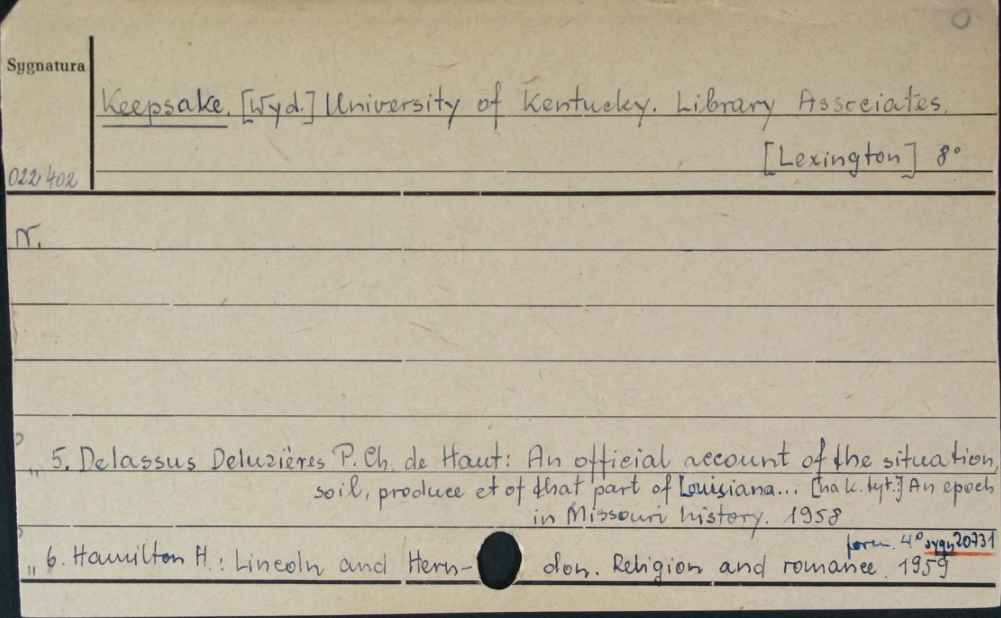 Sygnatura
Keepsake. [Wyd.] University of Kentucky. Library Associates.
[Lexington] 8°
022402
N.
" 5. Delassus Deluzières P. Ch. de Haut: An official account of the situation,
soil, produce et of that part of Louisiana... [na k. tyt.] An epoch
in Missouri history. 1958
form. 4° sygn 20731
" 6. Hamilton H.: Lincoln and Hern- don. Religion and romance. 1959